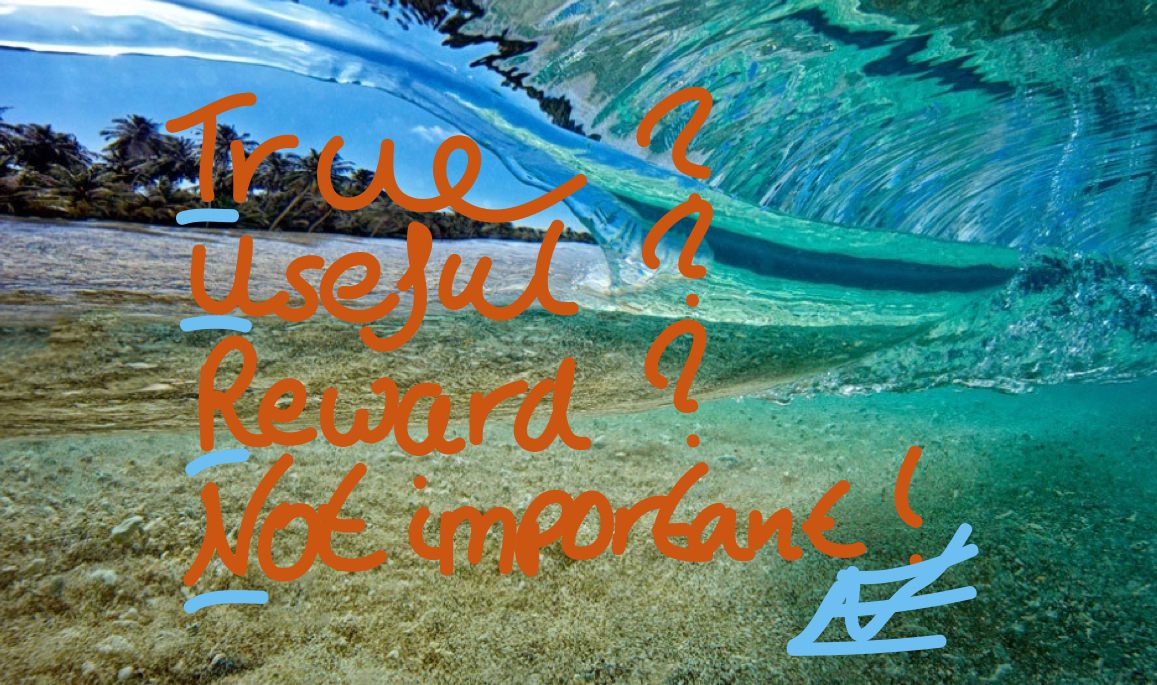 True ?
Useful ?
Reward ?
Not important !
AZ